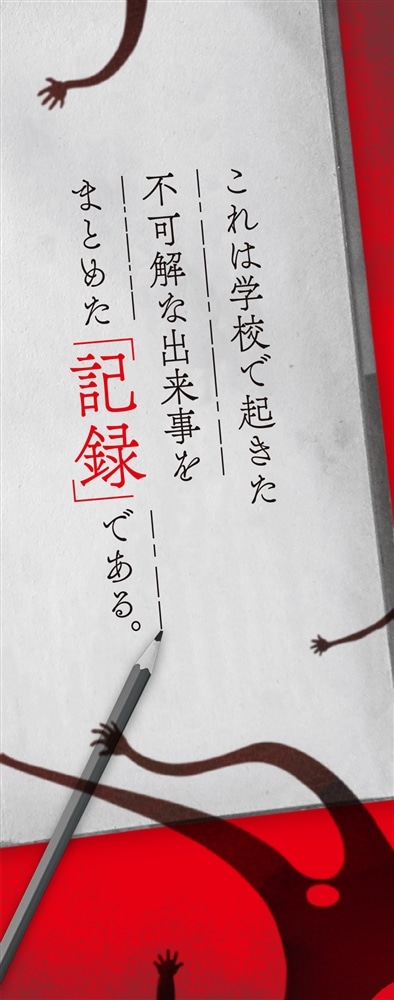 これは学校で起きた
不可解な出来事を
まとめた「記録」である。